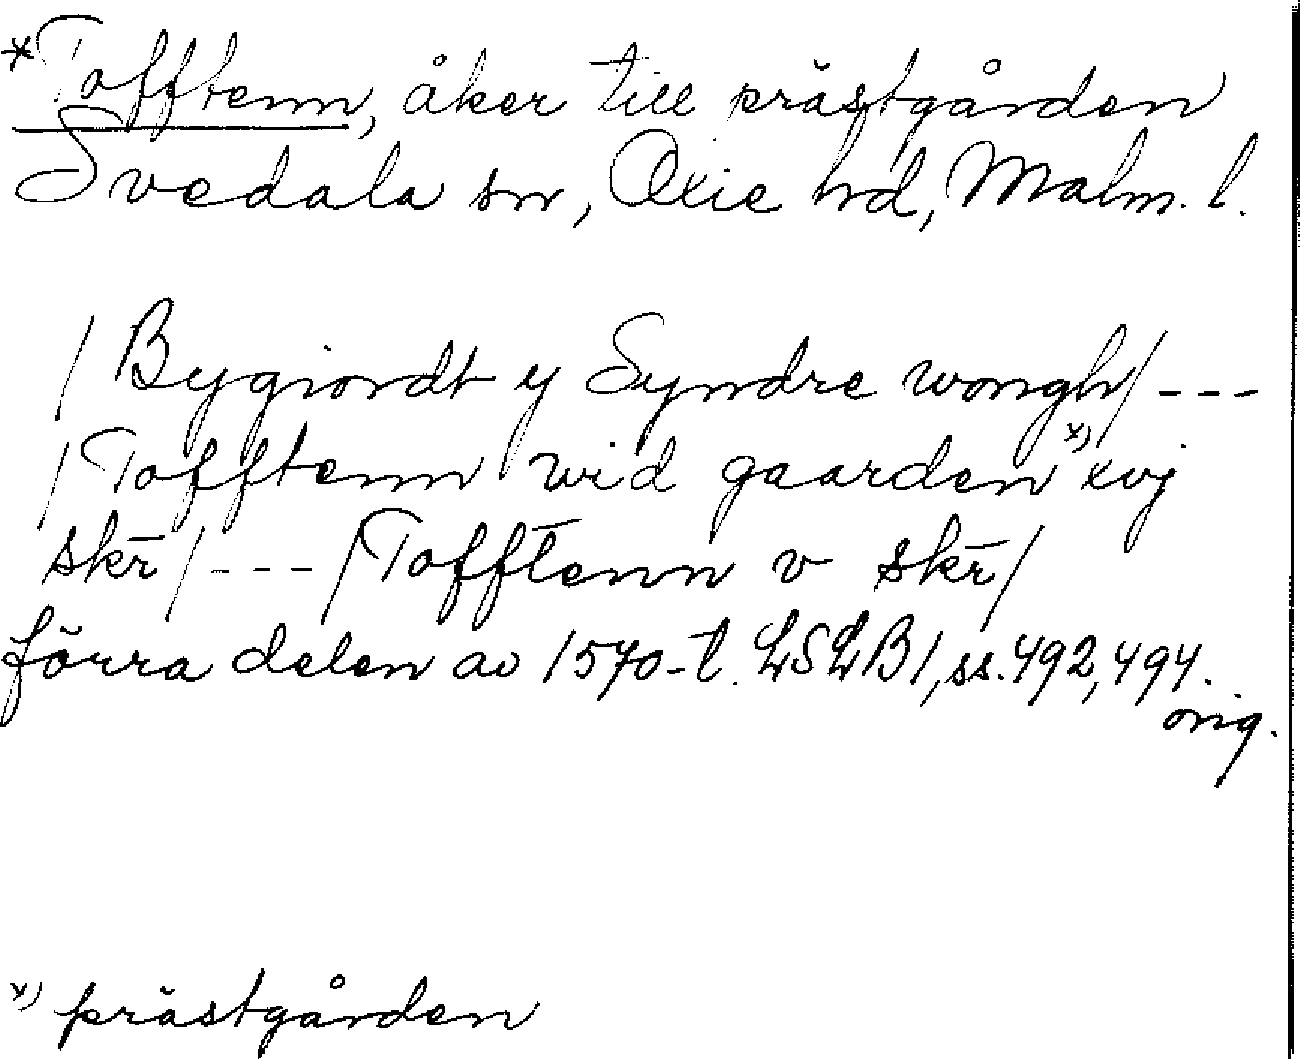 *Tofftenn, åker till prästgården
Svedala sn, Oxie hd, Malm. l.
/Bygiordt y Syndre wongh/ ---
/Tofftenn wid gaarden x) xvj
skr̄/ --- /Tofftenn v skr̄/
förra delen av 1570-t. LSLB1, ss. 492, 494.
orig.
x) prästgården